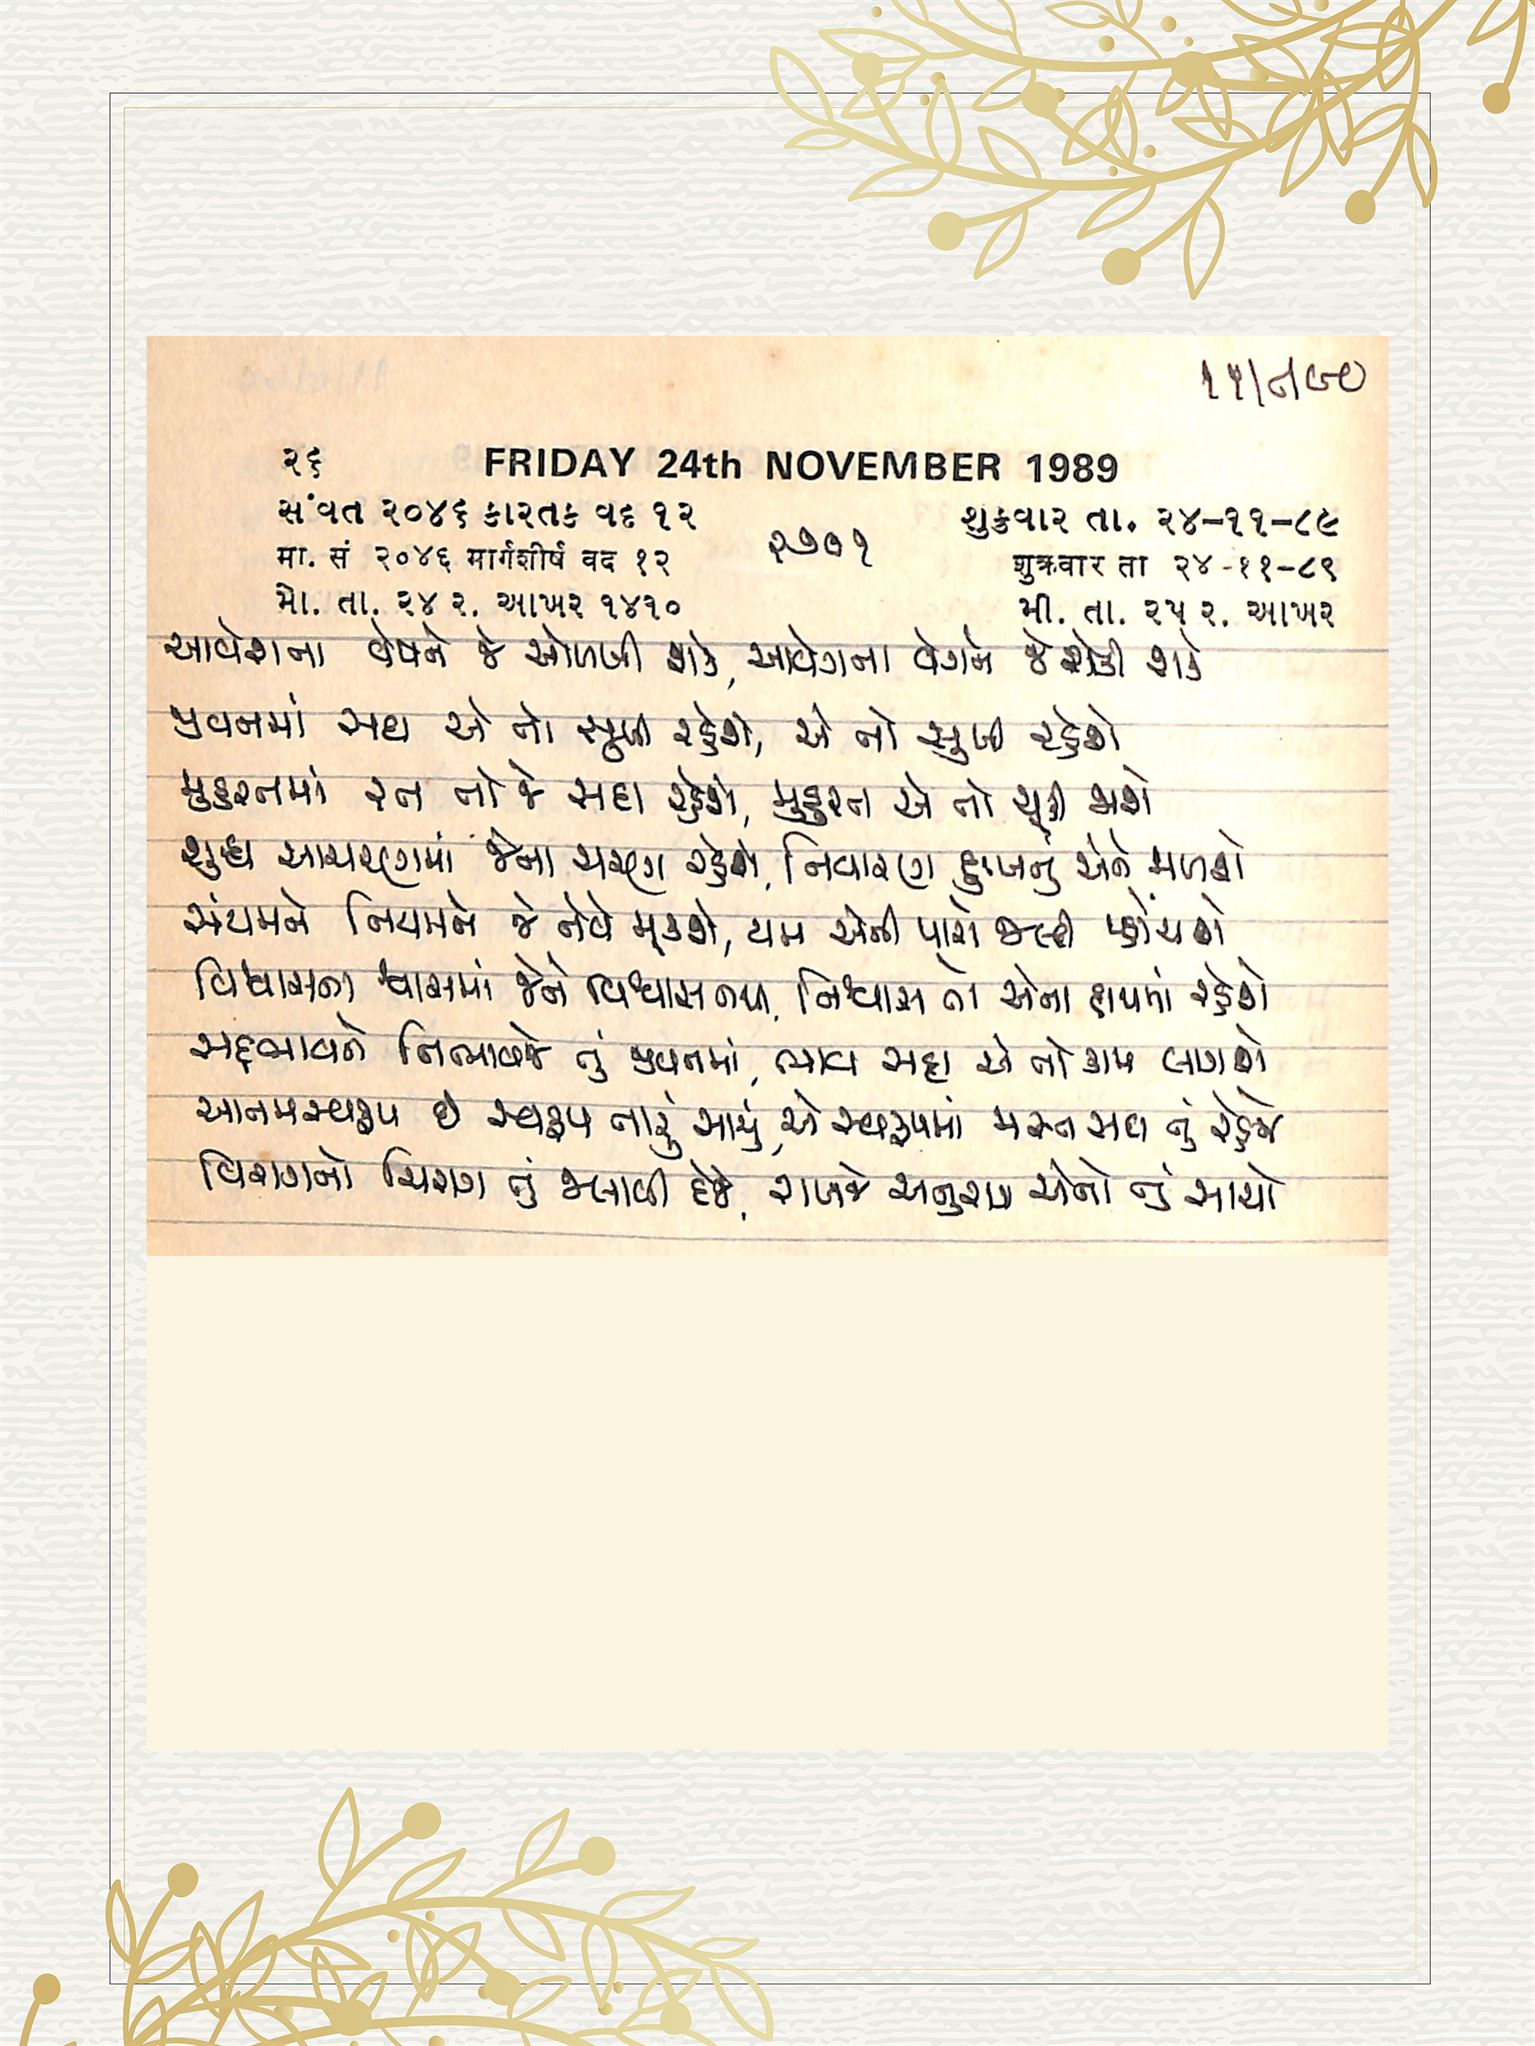 ૧૫/૮/૯૦
૨૬ FRIDAY 24th NOVEMBER 1989
સંવત ૨૦૪૬ કારતક વદ ૧૨ શુક્રવાર તા. ૨૪-૧૧-૮૯
मा. सं २०४६ मार्गशीर्ष वद १२ ૨૭૦૧ शुक्रवार ता २४-११-८९
મો. તા. ૨૪ ૨. આખર ૧૪૧૦ મી. તા. ૨૫ ૨. આખર
આવેશના વેષને જે ઓળખી શકે, આવેગના વેગને જે રોકી શકે
જીવનમાં સદા એ તો સુખી રહેશે, એ તો સુખી રહેશે
મુહૂરતમાં રત તો જે સદા રહેશે, મુહૂરત એ તો ચૂકી જાશે
શુદ્ધ આચરણમાં જેના ચરણ રહેશે, નિવારણ દુઃખનું એને મળશે
સંયમને નિયમને જે નેવે મૂકશે, યમ એની પાસે જલ્દી પ્હોંચશે
વિશ્વાસના શ્વાસમાં જેને વિશ્વાસ નથી, નિશ્વાસ તો એના હાથમાં રહેશે
સદ્દભાવને નિભાવજે તું જીવનમાં, ભાવ સદા એ તો કામ લાગશે
આતમસ્વરૂપ છે સ્વરૂપ તારું સાચું, એ સ્વરૂપમાં મસ્ત સદા તું રહેજે
વિરાગનો ચિરાગ તું જલાવી દેજે, રાખજે અનુરાગ એનો તું સાચો